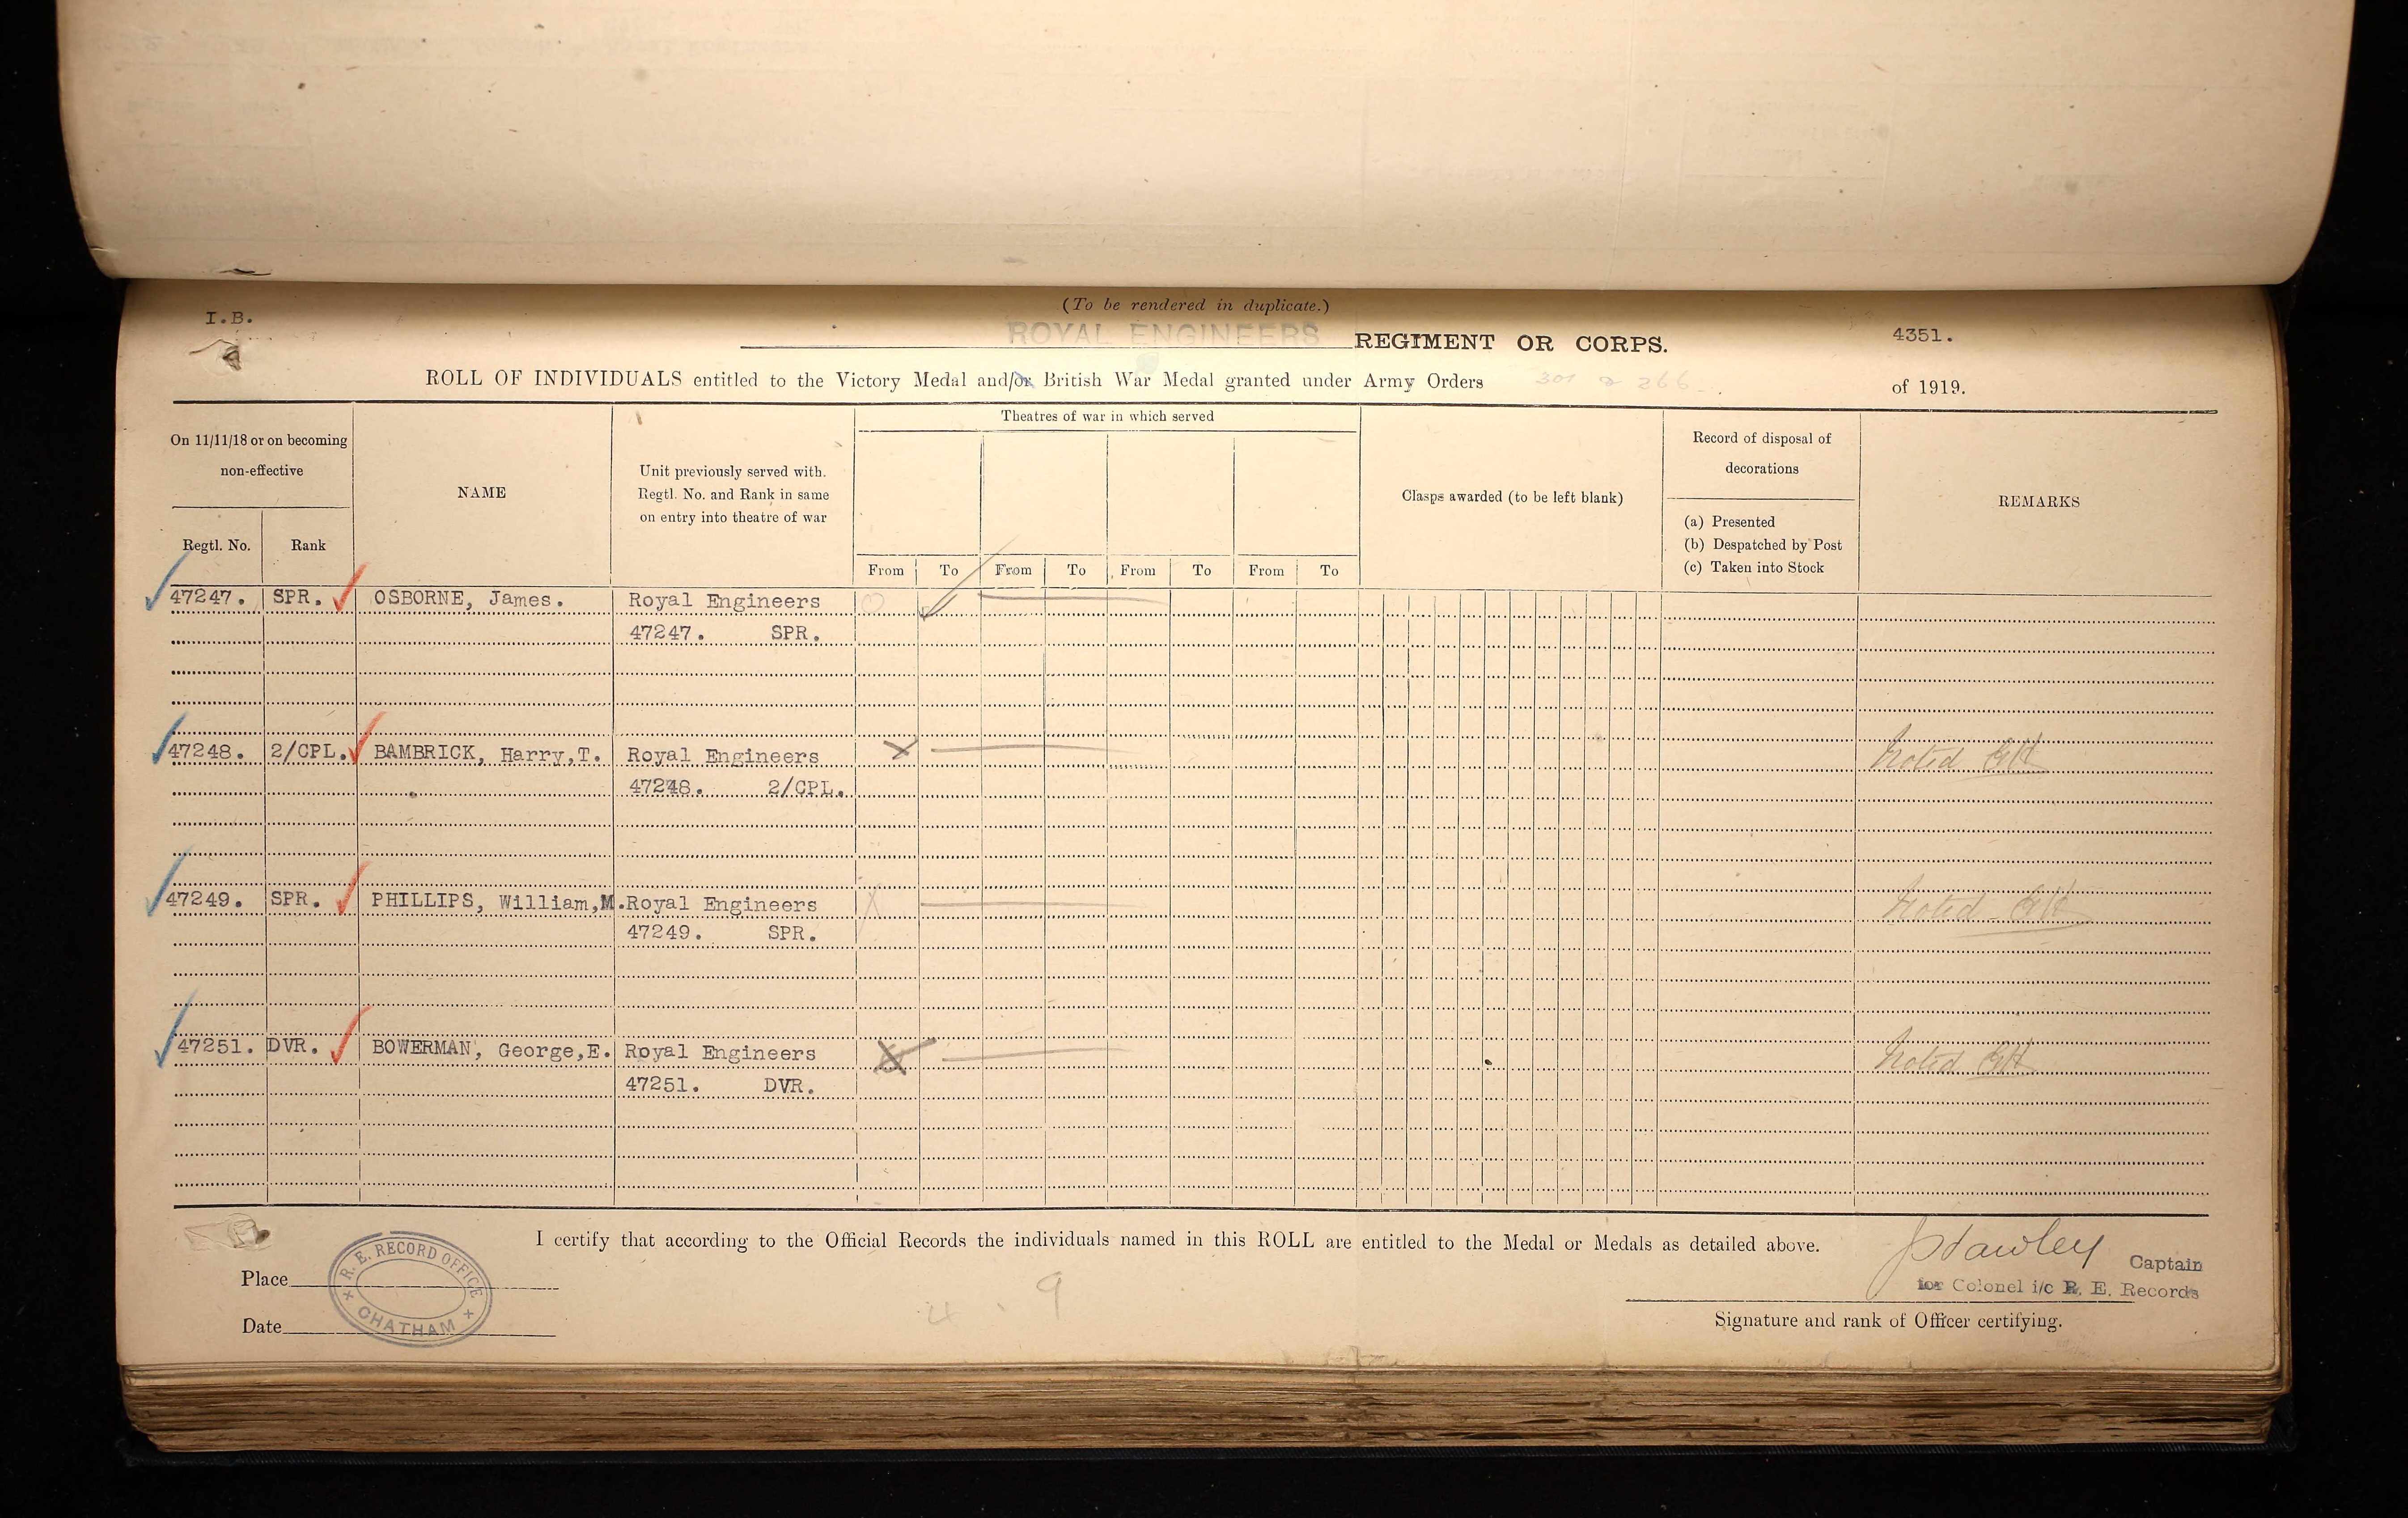 I.B.
(To be rendered in duplicate.)
ROYAL ENGINEERS REGIMENT OR CORPS.
4351.
ROLL OF INDIVIDUALS entitled to the Victory Medal and/or British War Medal granted under Army Orders 301 & 266 of 1919.
On 11/11/18 or on becoming
non-effective
Regtl. No.
Rank
NAME
Unit previously served with.
Regtl. No. and Rank in same
on entry into theatre of war
Theatres of war in which served
From To From To From To From To
Clasps awarded (to be left blank)
Record of disposal of
decorations
(a) Presented
(b) Despatched by Post
(c) Taken into Stock
REMARKS
47247. SPR. OSBORNE, James. Royal Engineers
47247. SPR.
47248. 2/CPL. BAMBRICK, Harry,T. Royal Engineers X Noted
47248. 2/CPL.
47249. SPR. PHILLIPS, William,M. Royal Engineers X Noted
47249. SPR.
47251. DVR. BOWERMAN, George,E. Royal Engineers X Noted
47251. DVR.
I certify that according to the Official Records the individuals named in this ROLL are entitled to the Medal or Medals as detailed above.
Place
Date
R. E. RECORD OFFICE
CHATHAM
4 . 9
Captain
for Colonel i/c R. E. Records
Signature and rank of Officer certifying.